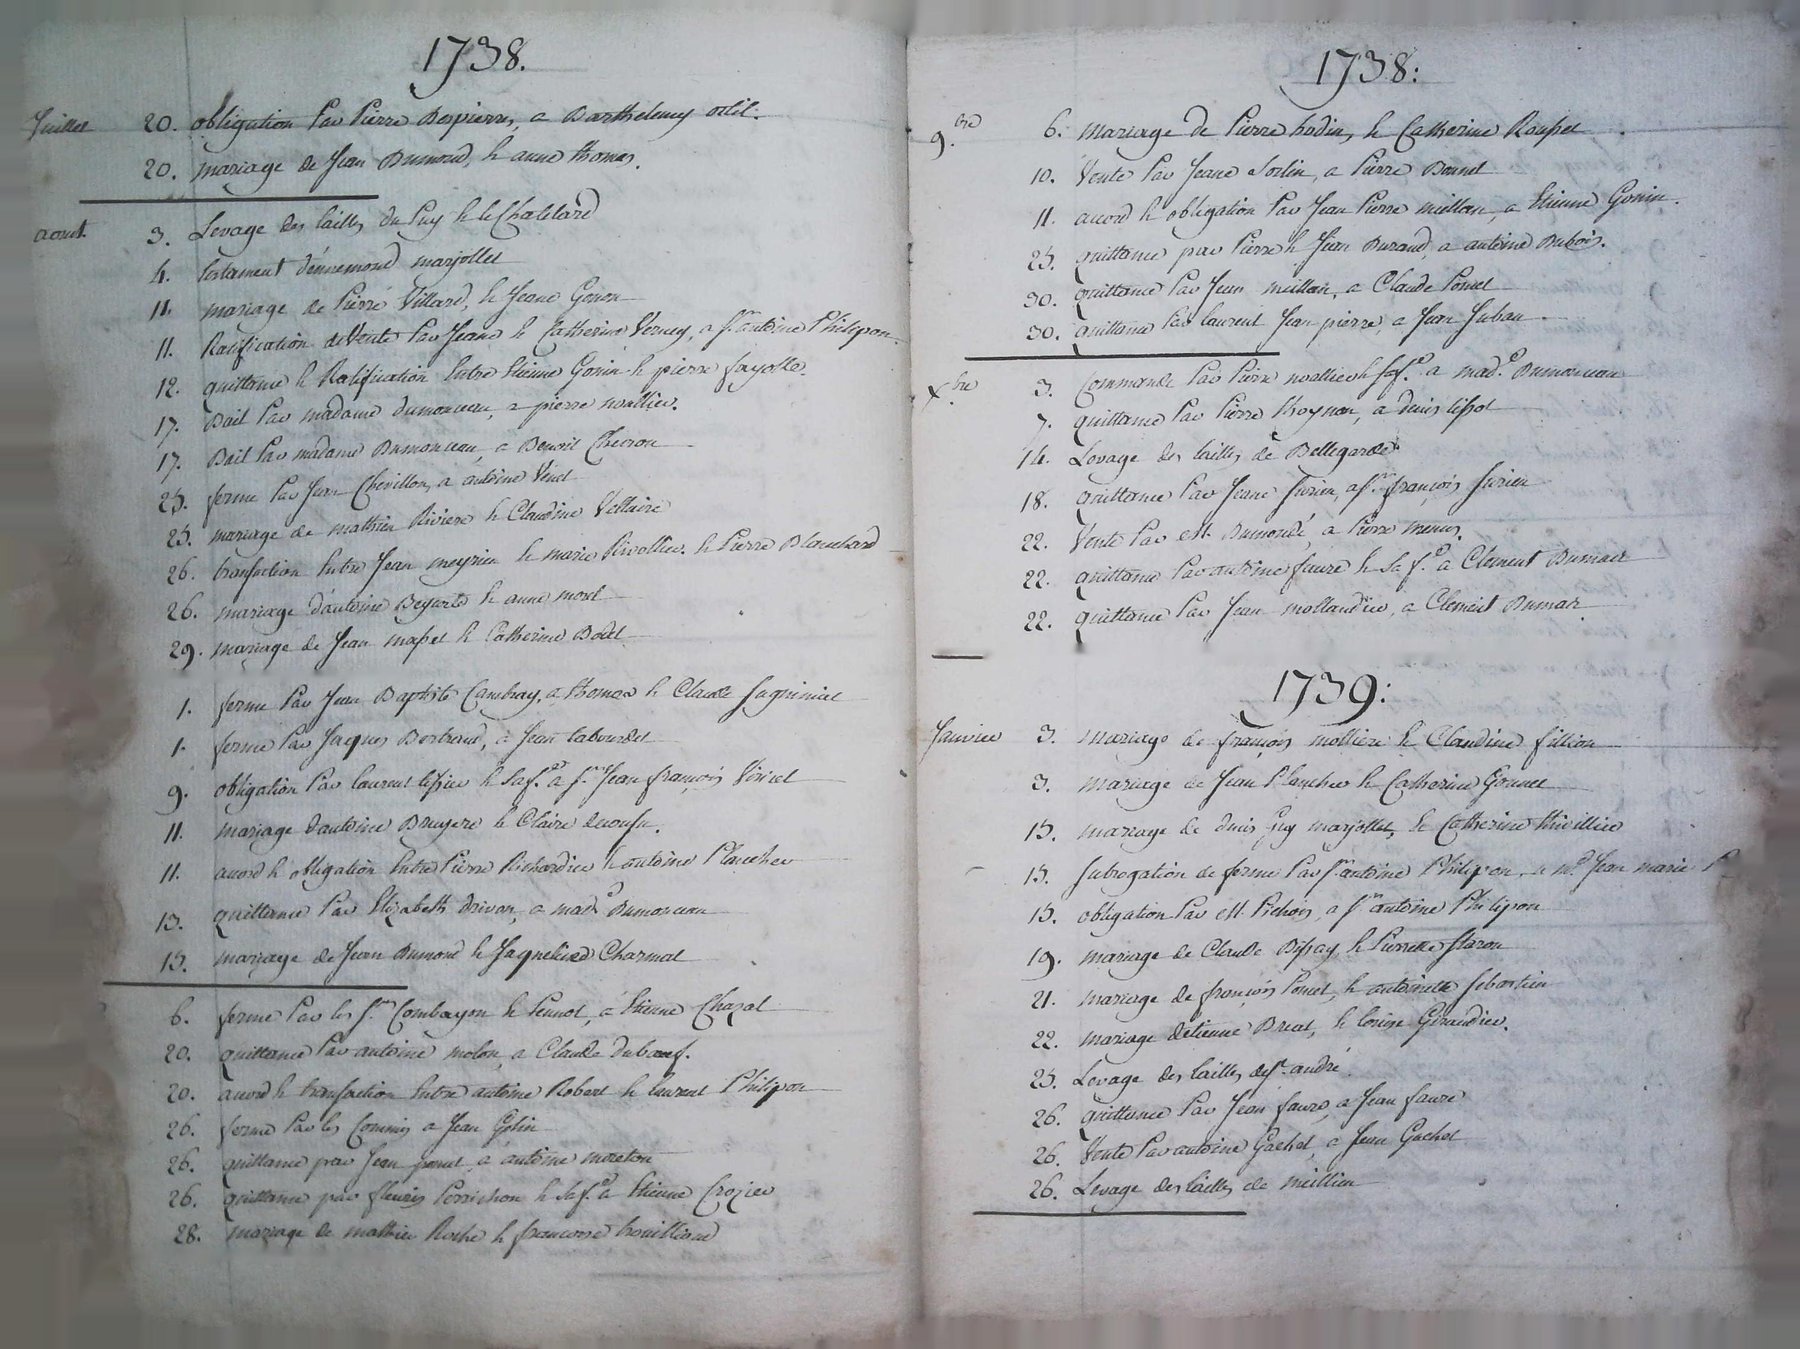 1738.
Juillet 20. obligation Par Pierre Despierres, a Barthelemy
20. mariage de Jean Dumond, & anne thomas.
aoust. 3. Levage des tailles du Puy & le Chatelard
4. testament d'ennemond marjollet
11. mariage de Pierre Villard, & Jeane Gonon
11. Ratification de Vente Par Jeane & Catherine Verney, a Sr. antoine Philipon.
12. quittance & Ratification Entre Etienne Gonin & pierre fayolle.
17. Bail Par madame dumonceau, a pierre
17. Bail Par madame Dumonceau, a Benoit
25. ferme Par Jean Chevillon, a antoine
25. mariage de mathieu Riviere & Claudine
26. transaction Entre Jean meyrieu & marie & Pierre Blanchard
26. mariage d'antoine & anne
29. mariage de Jean masset & Catherine
1. ferme Par Jean Baptiste Cambray, a thomas & Claude
1. ferme Par Jaques Bertrand, a Jean tabourdet
9. obligation Par laurent & Sa f.e a Sr. Jean françois
11. mariage d'antoine Bruyere & Claire
11. acord & obligation Entre Pierre Richardier & antoine Plancher
13. quittance Par Elizabeth drivon, a mad.e Dumonceau
15. mariage de Jean Dumond & Jaqueline Charmat
6. ferme Par les Srs. Combayon & a Etienne Chazal
20. quittance Par antoine molon, a Claude duboeuf.
20. acord & transaction Entre antoine Robert & laurent Philipon
26. ferme Par les Commis a Jean
26. quittance par Jean poncet, a antoine moreton
26. quittance par fleury Perrichon & Sa f.e a Etienne Crozier
28. mariage de mathieu Roche & francoise
1738:
9.bre 6. mariage de Pierre hodin, & Catherine Rousset
10. Vente Par Jeane Sorlin, a Pierre Bonnet
11. acord & obligation Par Jean Pierre meillan, a Etienne Gonin.
25. quittance par Pierre & Jean Durand, a antoine Dubois.
30. quittance Par Jean meillan, a Claude Poncet
30. quittance Par laurent Jean pierre, a Jean Juban
X.bre 3. Commande Par Pierre & Sa f.e a mad.e Dumonceau
7. quittance Par Pierre thoynon, a denis
14. Levage des tailles de Bellegarde
18. quittance Par Jeane Jurieu, a Sr. françois Jurieu
22. Vente Par Mr. Dumondé, a Pierre
22. quittance Par antoine faure & Sa f.e a Clement Dumas
22. quittance Par Jean mollandier, a Clement Dumas
1739:
Janvier 3. mariage de françois molliere & Claudine fillion
3. mariage de Jean Plancher & Catherine Gonnet
15. mariage de denis Guy marjollet, & Catherine thivillier
15. subrogation de ferme Par Sr. antoine Philipon, a Mr. Jean marie P
15. obligation Par Mr. Pichois, a Sr. antoine Philipon
19. mariage de Claude Bissay, & Pierrette flaron
21. mariage de françois Poncet, & antoinette Sebastien
22. mariage d'etienne Breat, & Giraudier.
25. Levage des tailles de St. andré.
26. quittance Par Jean faure, a Jean faure
26. Vente Par antoine Gachet, a Jean Gachet
26. Levage des tailles de meillieu